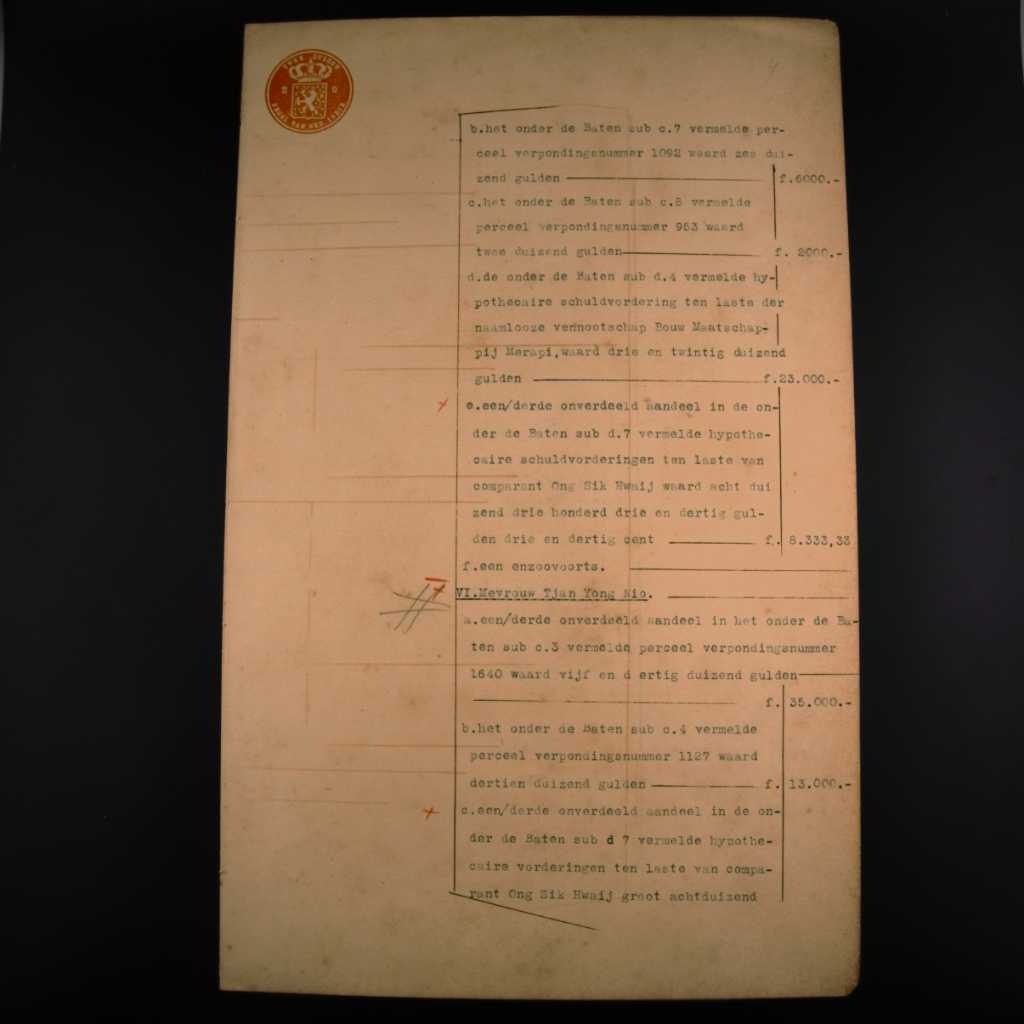 4
b.het onder de Baten sub c.7 vermelde per-
ceel verpondingsnummer 1092 waard zes dui-
zend gulden f.6000.-
c.het onder de Baten sub c.8 vermelde
perceel verpondingsnummer 953 waard
twee duizend gulden f. 2000.-
d.de onder de Baten sub d.4 vermelde hy-
pothecaire schuldvordering ten laste der
naamlooze vennootschap Bouw Maatschap-
pij Merapi,waard drie en twintig duizend
gulden f.23.000.-
e.een/derde onverdeeld aandeel in de on-
der de Baten sub d.7 vermelde hypothe-
caire schuldvorderingen ten laste van
comparant Ong Sik Hwaij waard acht dui
zend drie honderd drie en dertig gul-
den drie en dertig cent f. 8.333,33
f.een enzoovoorts.
VI.Mevrouw Tjan Yong Nio.
a.een/derde onverdeeld aandeel in het onder de Ba-
ten sub c.3 vermelde perceel verpondingsnummer
1640 waard vijf en d ertig duizend gulden
f. 35.000.-
b.het onder de Baten sub c.4 vermelde
perceel verpondingsnummer 1127 waard
dertien duizend gulden f. 13.000.-
c.een/derde onverdeeld aandeel in de on-
der de Baten sub d 7 vermelde hypothe-
caire vorderingen ten laste van compa-
rant Ong Sik Hwaij groot achtduizend